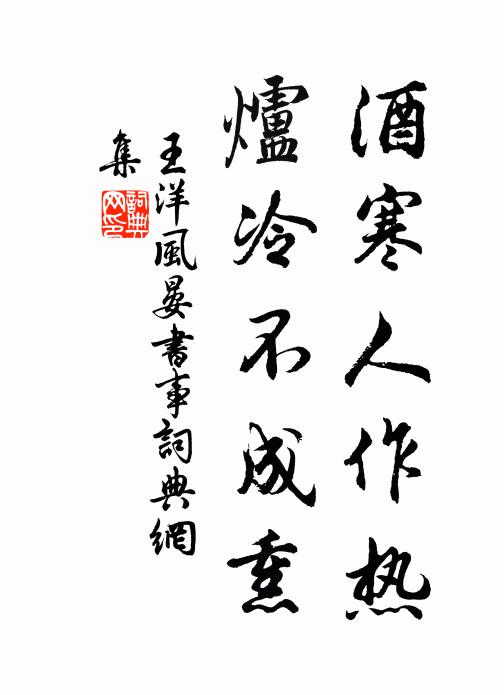 酒寒人作热
爐冷不成熏
王洋風晏書事詞典網
集
詞典网印